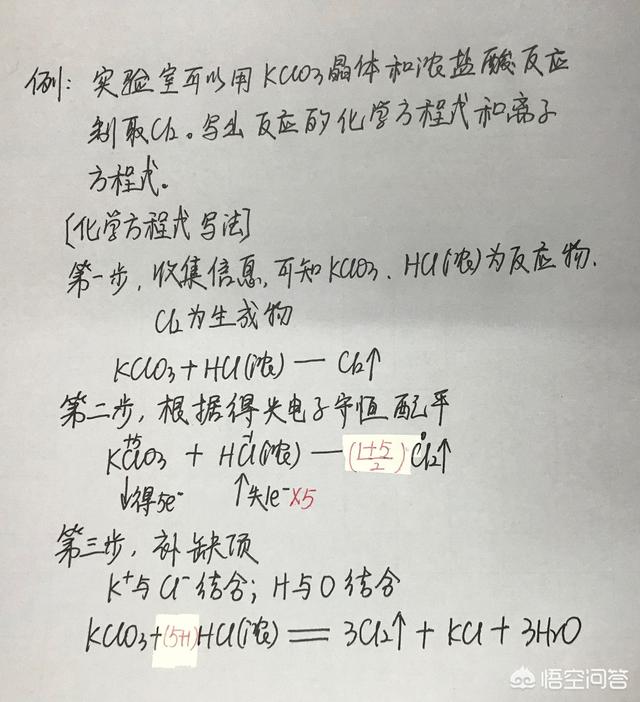 例：实验室可以用KClO3晶体和浓盐酸反应
制取Cl2。写出反应的化学方程式和离子
方程式。
[化学方程式写法]
第一步，收集信息，可知KClO3、HCl(浓)为反应物，
Cl2为生成物
KClO3+HCl(浓)—Cl2↑
第二步，根据得失电子守恒配平
+5 -1 0
KClO3 + HCl(浓)—(1+5/2)Cl2↑
↓得5e- ↑失1e-×5
第三步，补缺项
K+与Cl-结合；H与O结合
KClO3+(5+1)HCl(浓)═3Cl2↑+KCl+3H2O
悟空问答